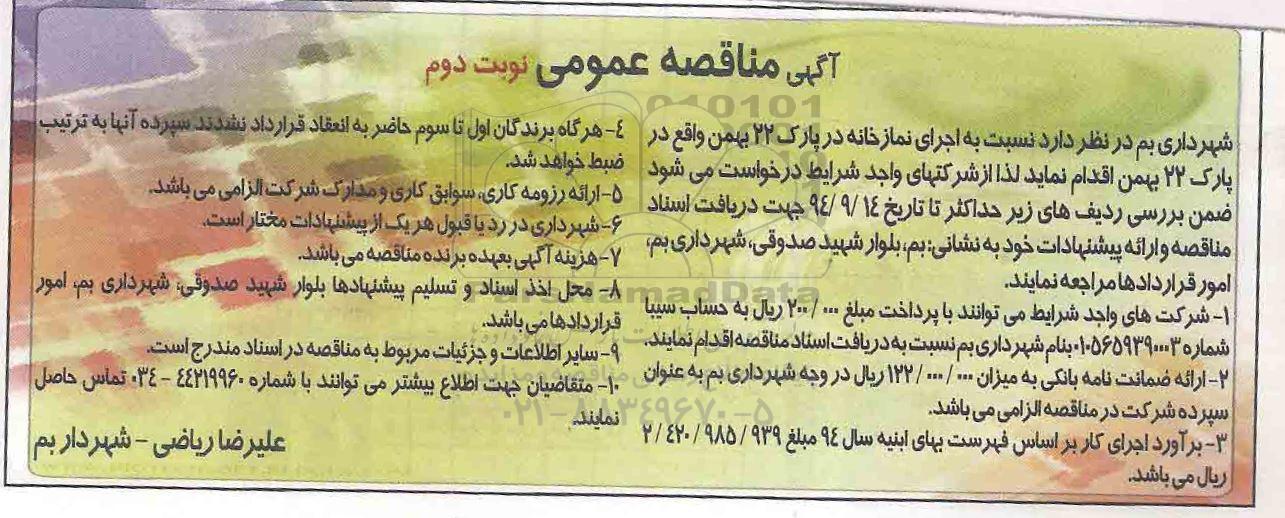 آگهی مناقصه عمومی نوبت دوم
شهرداری بم در نظر دارد نسبت به اجرای نمازخانه در پارک ۲۲ بهمن واقع در
پارک ۲۲ بهمن اقدام نماید لذا ازشرکتهای واجد شرایط درخواست می شود
ضمن بررسی ردیف های زیر حداکثر تا تاریخ ۹۴/۹/۱۴ جهت دریافت اسناد
مناقصه وارائه پیشنهادات خود به نشانی: بم، بلوار شهید صدوقی، شهرداری بم،
امور قراردادها مراجعه نمایند.
۱- شرکت های واجد شرایط می توانند با پرداخت مبلغ ۲۰۰/۰۰۰ ریال به حساب سیبا
شماره ۰۱۰۵۶۵۹۳۹۰۰۰۳ بنام شهرداری بم نسبت به دریافت اسناد مناقصه اقدام نمایند.
۲- ارائه ضمانت نامه بانکی به میزان ۱۲۲/۰۰۰/۰۰۰ ریال در وجه شهرداری بم به عنوان
سپرده شرکت در مناقصه الزامی می باشد.
۳- برآورد اجرای کار بر اساس فهرست بهای ابنیه سال ۹۴ مبلغ ۲/۴۲۰/۹۸۵/۹۳۹
ریال می باشد.
۴- هرگاه برندگان اول تا سوم حاضر به انعقاد قرارداد نشدند سپرده آنها به ترتیب
ضبط خواهد شد.
۵- ارائه رزومه کاری، سوابق کاری و مدارک شرکت الزامی می باشد.
۶- شهرداری در رد یا قبول هر یک از پیشنهادات مختار است.
۷- هزینه آگهی بعهده برنده مناقصه می باشد.
۸- محل اخذ اسناد و تسلیم پیشنهادها بلوار شهید صدوقی، شهرداری بم، امور
قراردادها می باشد.
۹- سایر اطلاعات و جزئیات مربوط به مناقصه در اسناد مندرج است.
۱۰- متقاضیان جهت اطلاع بیشتر می توانند با شماره ۴۴۲۱۹۹۶۰ - ۰۳۴ تماس حاصل
نمایند.
علیرضا ریاضی - شهردار بم
۰۲۱-۸۸۳۴۹۶۷۰-۵